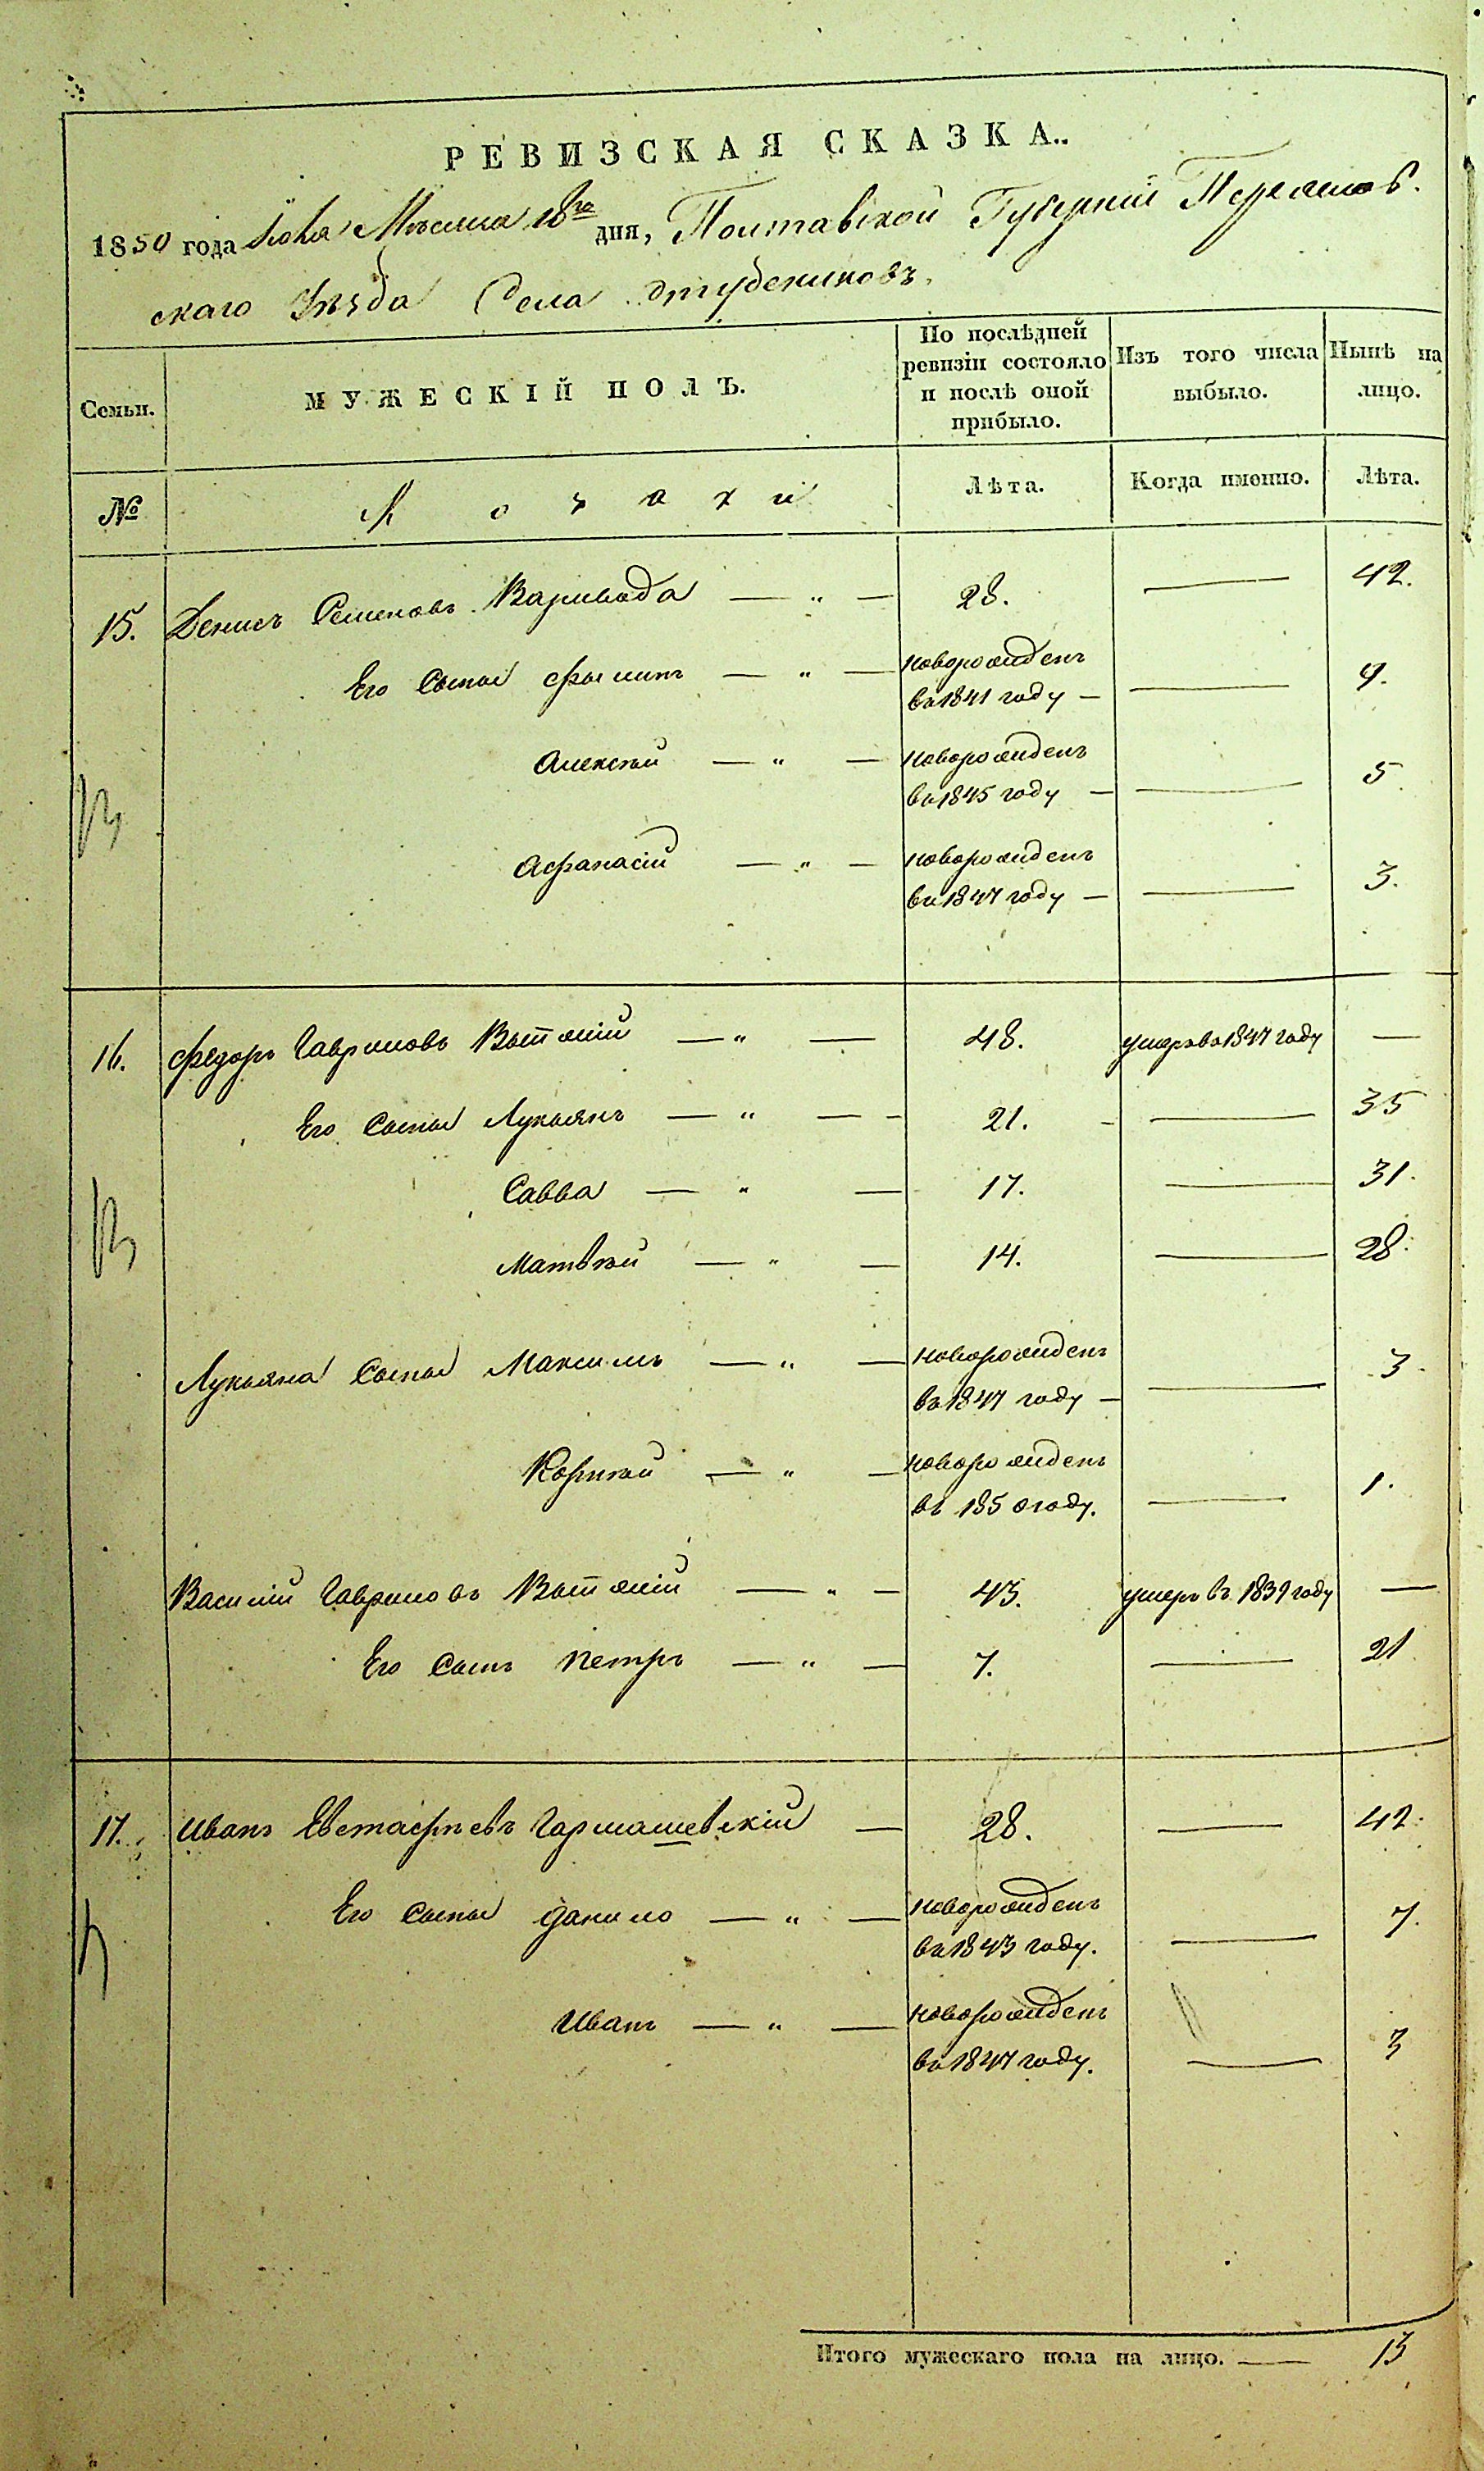 РЕВИЗСКАЯ СКАЗКА..
1850 года Іюля Мѣсяца 18го дня, Полтавской Губерніи Переяслов-
скаго Уѣзда Села Студениковъ.
Семьи.
МУЖЕСКІЙ ПОЛЪ.
По послѣдней ревизіи состояло и послѣ оной прибыло.
Изъ того числа выбыло.
Нынѣ на лицо.
№
Козаки
Лѣта.
Когда именно.
Лѣта.
15. Денисъ Семеновъ Варивода — „ — 28. — 42.
Его Сынья Филипъ — „ — новорожденъ
въ 1841 году — — 9.
Алексѣй — „ — новорожденъ
въ 1845 году — — 5
Афанасій — „ — новорожденъ
въ 1847 году — — 3.
16. Федоръ Гавриловъ — „ — 48. умеръ въ 1847 году —
Его Сынья Лукьянъ — „ — - 21. - — 35
Савва — „ — 17. — 31.
Матвѣй — „ — 14. — 28.
Лукьяна Сынья Максимъ — „ — новорожденъ
въ 1847 году — — 3.
Корнѣй — „ — новорожденъ
въ 1850 году. — 1.
Василій Гавриловъ — „ — 43. умеръ въ 1839 году —
Его Сынъ Петръ — „ — 7. — 21
17. Иванъ Евстафьевъ Гармашевскій — 28. — 42.
Его Сынья Данило — „ — новорожденъ
въ 1843 году. — 7.
Иванъ — „ — новорожденъ
въ 1847 году. — 3
Итого мужескаго пола на лицо. — 13